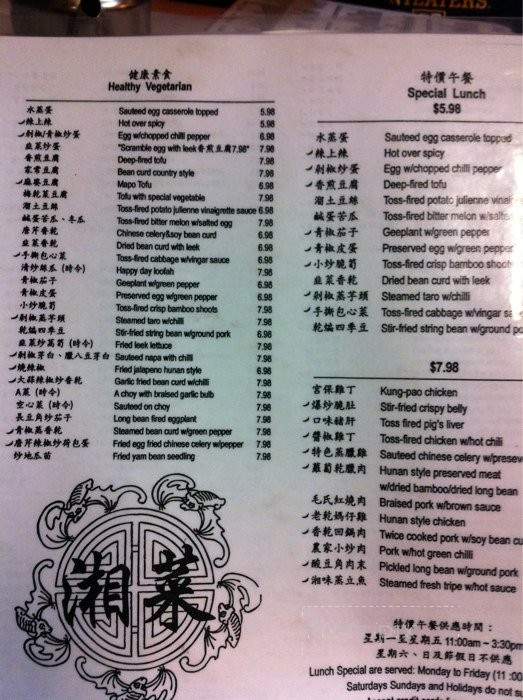 健康素食
Healthy Vegetarian
水蒸蛋 Sauteed egg casserole topped 5.98
辣上辣 Hot over spicy 5.98
剁椒/青椒炒蛋 Egg w/chopped chilli pepper 6.98
韭菜炒蛋 "Scramble egg with leek香煎豆腐7.98" 7.98
香煎豆腐 Deep-fired tofu 7.98
家常豆腐 Bean curd country style 7.98
麻婆豆腐 Mapo Tofu 6.98
梅乾菜豆腐 Tofu with special vegetable 7.98
溜土豆絲 Toss-fired potato julienne vinaigrette sauce 6.98
鹹蛋苦瓜、冬瓜 Toss-fired bitter melon w/salted egg 7.98
唐芹香乾 Chinese celery&soy bean curd 6.98
韭菜香乾 Dried bean curd with leek 6.98
手撕包心菜 Toss-fired cabbage w/vingar sauce 6.98
清炒絲瓜 (時令) Happy day loofah 7.98
青椒茄子 Geeplant w/green pepper 6.98
青椒皮蛋 Preserved egg w/green pepper 6.98
小炒脆筍 Toss-fired crisp bamboo shoots 7.98
剁椒蒸芋頭 Steamed taro w/chilli 7.98
乾煸四季豆 Stir-fried string bean w/ground pork 6.98
韭菜炒萵筍 (時令) Fried leek lettuce 7.98
剁椒芽白、臘八豆芽白 Sauteed napa with chilli 7.98
燒辣椒 Fried jalapeno hunan style 6.98
大蒜辣椒炒香乾 Garlic fried bean curd w/chilli 7.98
A菜 (時令) A choy with braised garlic bulb 7.98
空心菜 (時令) Sauteed on choy 7.98
長豆角炒茄子 Long bean fired eggplant 7.98
青椒蒸香乾 Steamed bean curd w/green pepper 7.98
唐芹辣椒炒荷包蛋 Fried egg fried chinese celery w/pepper 7.98
炒地瓜苗 Fried yam bean seedling 7.98
湘菜
特價午餐
Special Lunch
$5.98
水蒸蛋 Sauteed egg casserole topped
辣上辣 Hot over spicy
剁椒炒蛋 Egg w/chopped chilli pepper
香煎豆腐 Deep-fired tofu
溜土豆絲 Toss-fired potato julienne
鹹蛋苦瓜 Toss-fired bitter melon w/salte
青椒茄子 Geeplant w/green pepper
青椒皮蛋 Preserved egg w/green pepper
小炒脆筍 Toss-fired crisp bamboo shoots
韭菜香乾 Dried bean curd with leek
剁椒蒸芋頭 Steamed taro w/chilli
手撕包心菜 Toss-fired cabbage w/vingar sa
乾煸四季豆 Stir-fried string bean w/ground po
$7.98
宮保雞丁 Kung-pao chicken
爆炒脆肚 Stir-fried crispy belly
口味豬肝 Toss fired pig's liver
醬椒雞丁 Toss-fired chicken w/hot chili
特色蒸臘雞 Sauteed chinese celery w/preserv
蘿蔔乾臘肉 Hunan style preserved meat
w/dried bamboo/dried long bean
毛氏紅燒肉 Braised pork w/brown sauce
老乾媽仔雞 Hunan style chicken
香乾回鍋肉 Twice cooked pork w/soy bean cu
農家小炒肉 Pork w/hot green chilli
酸豆角肉末 Pickled long bean w/ground pork
湘味蒸立魚 Steamed fresh tripe w/hot sauce
特價午餐供應時間：
星期一至星期五 11:00am ~ 3:30pm
星期六、日及節假日不供應
Lunch Special are served: Monday to Friday (11:00
Saturdays Sundays and Holidays do not